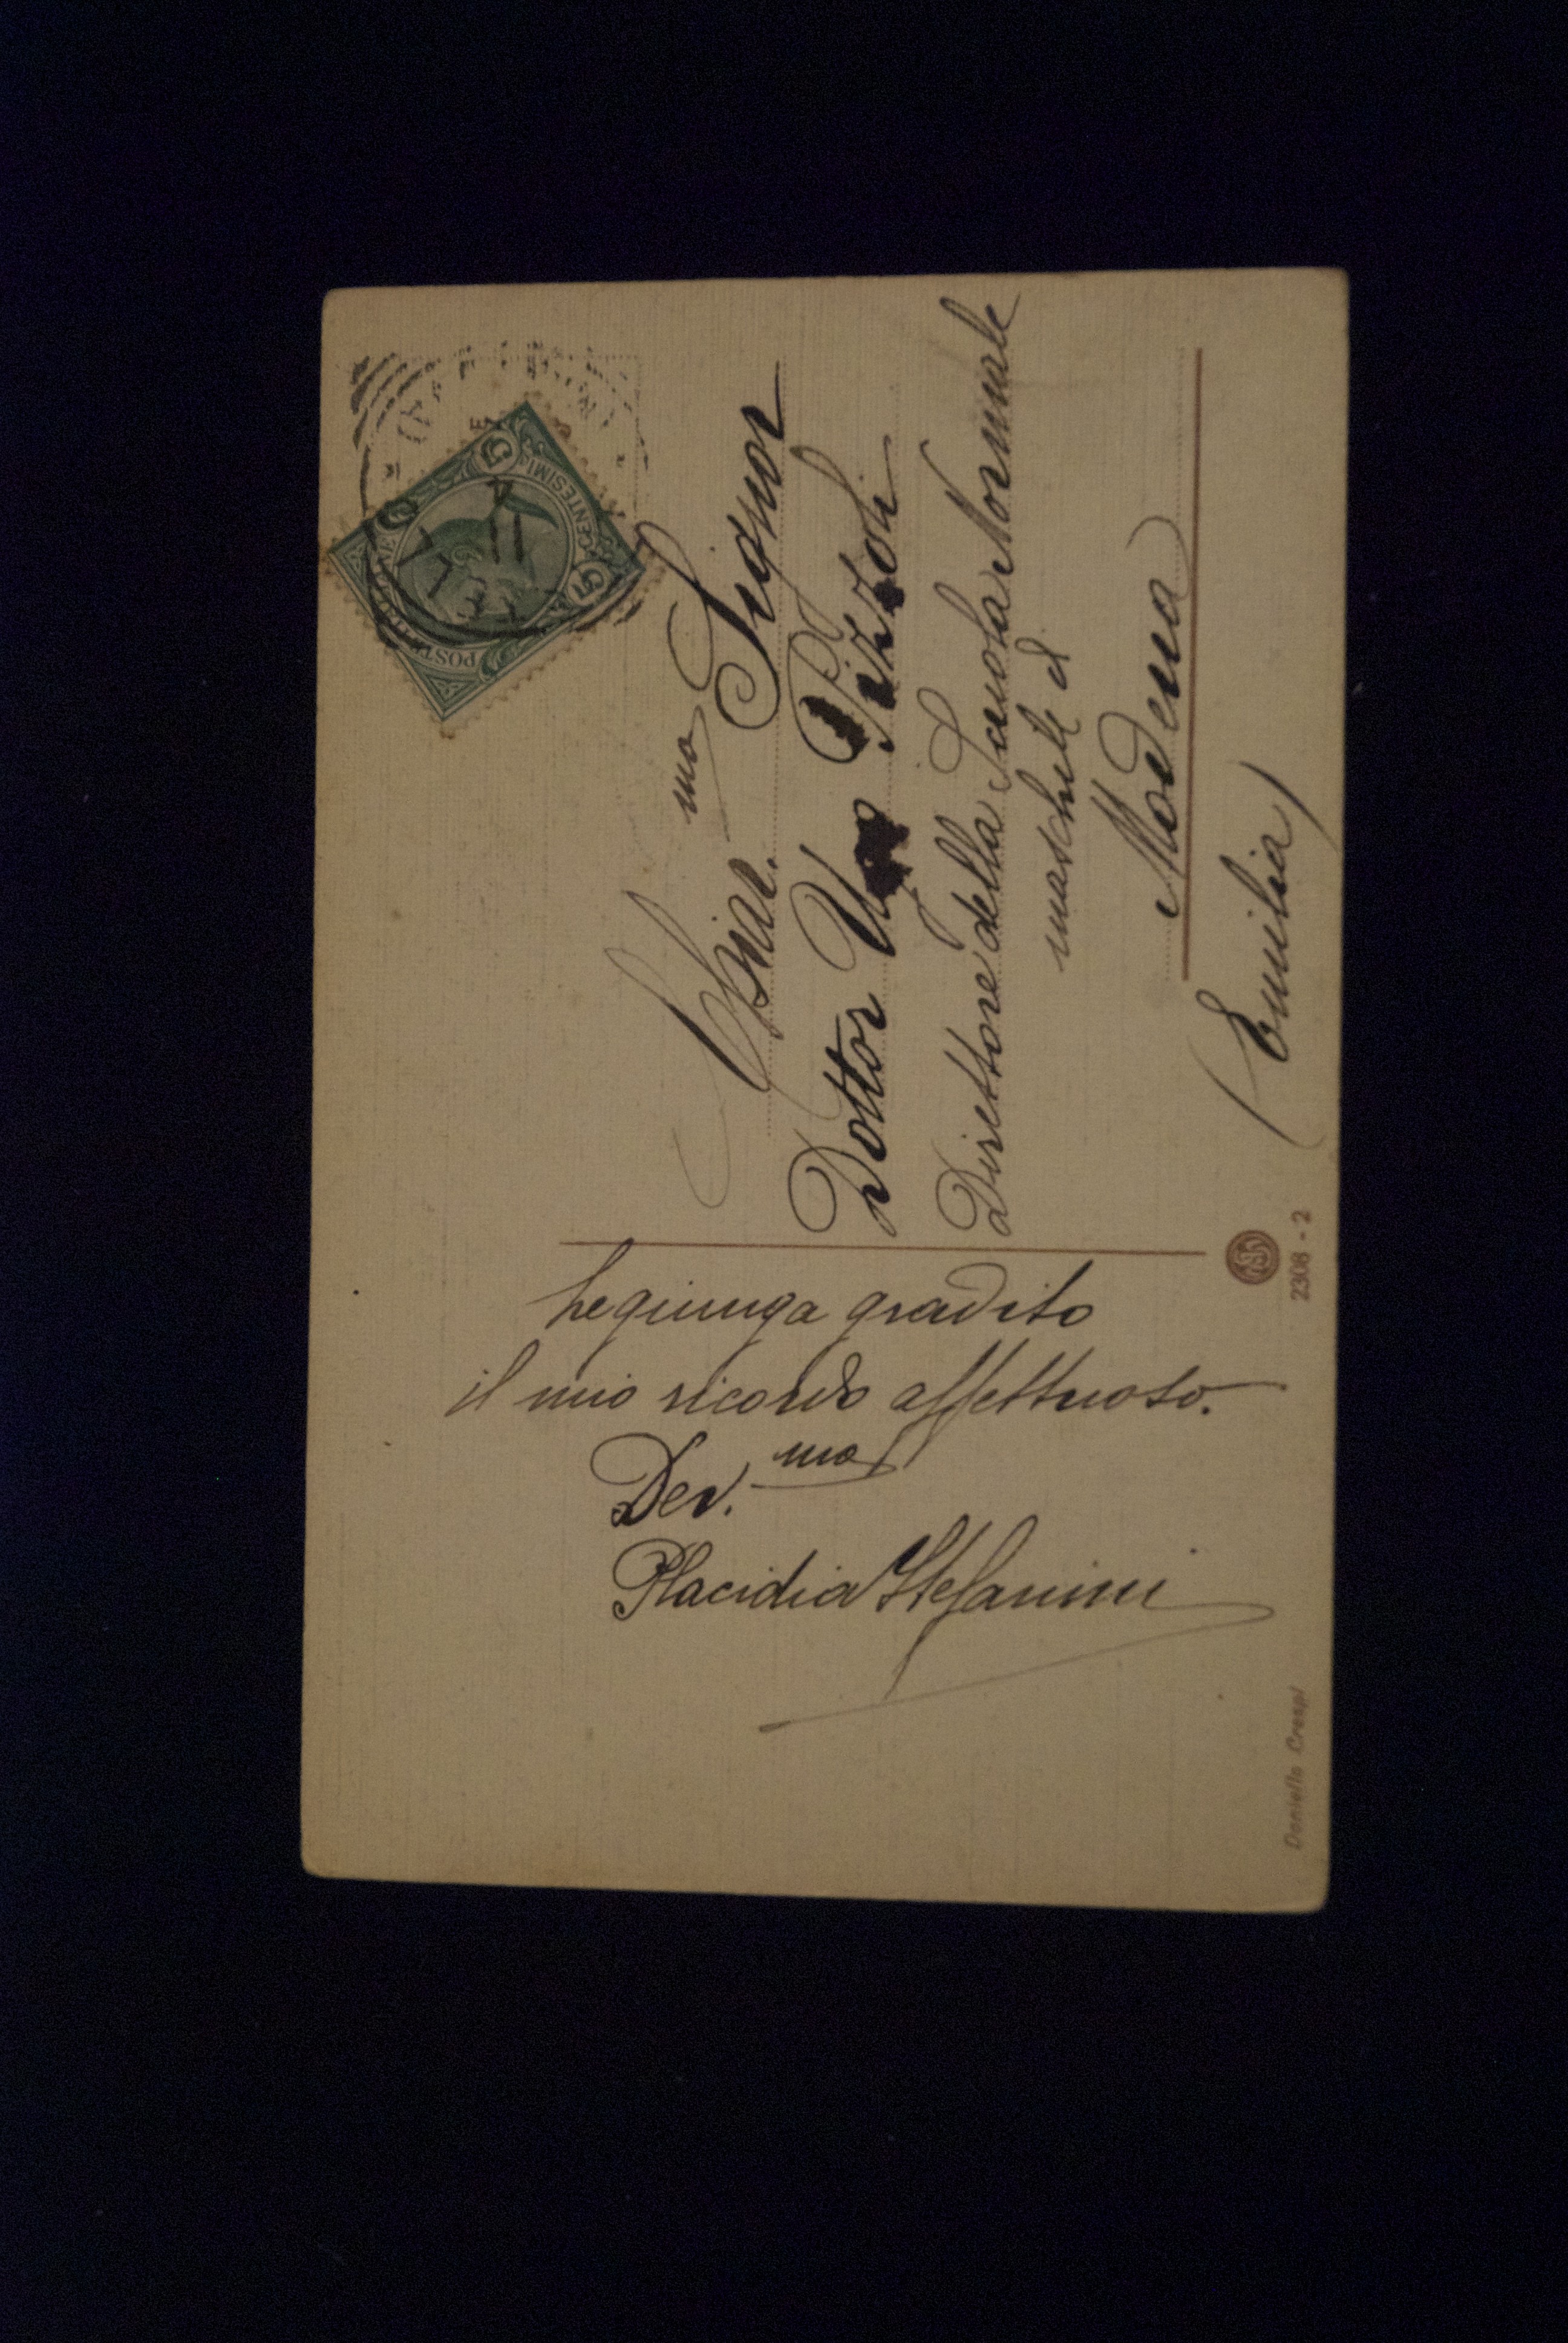 Le giunga gradito
il mio ricordo affettuoso.
Dev.mo
Placidia Stefanini
Signor
Dottor Ugo Pizzoli
Direttore della Scuola Normale
maschile di
Modena
(Emilia)
5 CENTESIMI 5
2308 - 2
Daniello Crespi